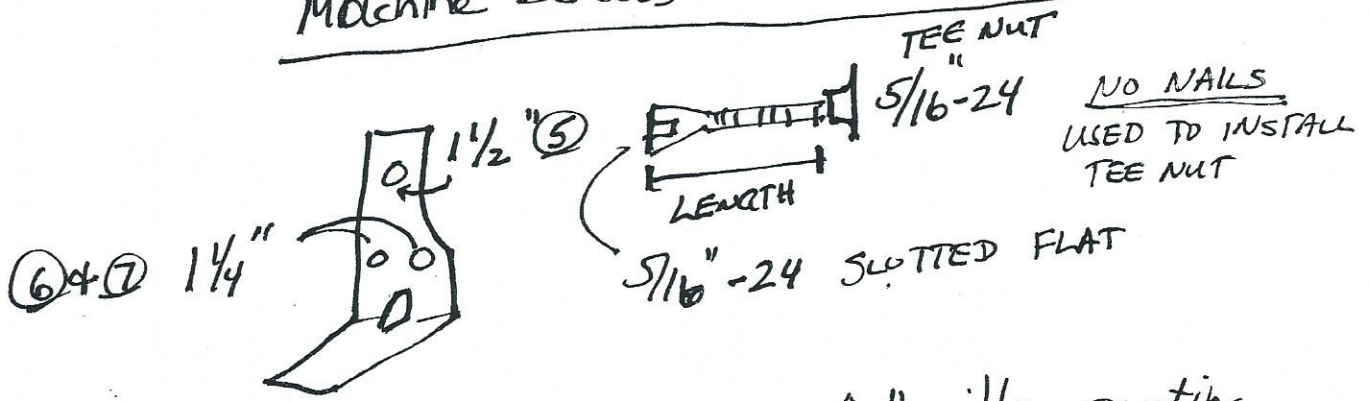 Machine
TEE NUT
5/16"-24
NO NAILS
USED TO INSTALL
TEE NUT
1 1/2" ⑤
LENGTH
⑥+⑦ 1 1/4"
5/16"-24 SLOTTED FLAT